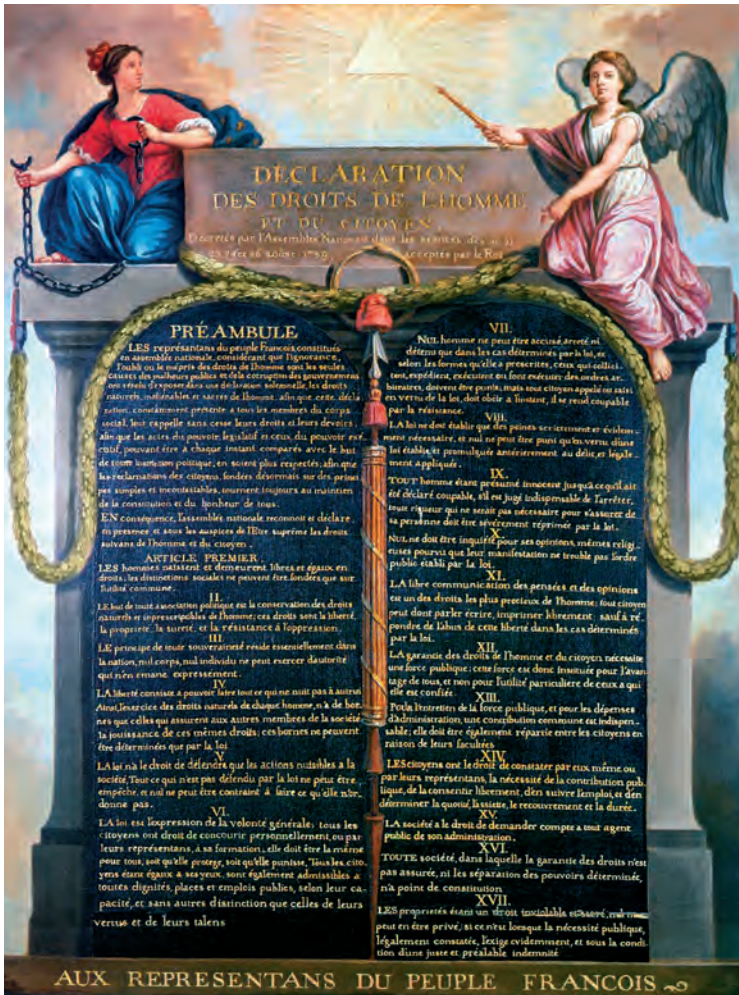 DÉCLARATION
DES DROITS DE L'HOMME
ET DU CITOYEN,
Décrétés par l'Assemblée Nationale dans les séances des
aoust 1789, acceptés par le Roi
PRÉAMBULE
LES représentans du peuple François, constitués
en assemblée nationale, considérant que l'ignorance,
l'oubli ou le mépris des droits de l'homme sont les seules
causes des malheurs publics et de la corruption des gouvernemens
ont résolu d'exposer dans une déclaration solemnelle, les droits
naturels, inaliénables et sacrés de l'homme: afin que cette décla
ration, constamment présente a tous les membres du corps
social, leur rappelle sans cesse leurs droits et leurs devoirs:
afin que les actes du pouvoir législatif et ceux du pouvoir exé
cutif, pouvant être à chaque instant comparés avec le but
de toute institution politique, en soient plus respectés; afin que
les réclamations des citoyens, fondées désormais sur des princi
pes simples et incontestables, tournent toujours au maintien
de la constitution et du bonheur de tous.
EN conséquence, l'assemblée nationale reconnoit et déclare
en presence et sous les auspices de l'Etre suprême les droits
suivans de l'homme et du citoyen.
ARTICLE PREMIER.
LES hommes naissent et demeurent libres et égaux en
droits; les distinctions sociales ne peuvent être fondées que sur
l'utilité commune.
II.
LE but de toute association politique est la conservation des droits
naturels et inprescriptibles de l'homme; ces droits sont la liberté,
la propriété, la sureté, et la résistance à l'oppression.
III.
LE principe de toute souveraineté réside essentiellement dans
la nation, nul corps, nul individu ne peut exercer d'autorité
qui n'en émane expressement.
IV.
LA liberté consiste a pouvoir faire tout ce qui ne nuit pas à autrui
Ainsi, l'exercice des droits naturels de chaque homme, n'a de bor
nes que celles qui assurent aux autres membres de la société
la jouissance de ces mêmes droits; ces bornes ne peuvent
être déterminées que par la loi
V.
LA loi n'a le droit de défendre que les actions nuisibles a la
société. Tout ce qui n'est pas défendu par la loi ne peut être
empêché, et nul ne peut être contraint à faire ce qu'elle n'or
donne pas.
VI.
LA loi est l'expression de la volonté générale; tous les
citoyens ont droit de concourir personnellement, ou par
leurs représentans, à sa formation; elle doit être la même
pour tous, soit qu'elle protege, soit qu'elle punisse. Tous les cito
yens étant égaux a ses yeux, sont également admissibles à
toutes dignités, places et emplois publics, selon leur ca
pacité, et sans autres distinction que celles de leurs
vertus et de leurs talens
VII.
NUL homme ne peut être accusé, arreté ni
détenu que dans les cas déterminés par la loi, et
selon les formes qu'elle a prescrites, ceux qui sollici
tent, expédient, exécutent ou font exécuter des ordres ar
bitraires, doivent être punis; mais tout citoyen appelé ou saisi
en vertu de la loi, doit obéir a l'instant, il se rend coupable
par la résistance.
VIII.
LA loi ne doit établir que des peines strictement et évidem
ment nécessaire, et nul ne peut être puni qu'en vertu d'une
loi établie, et promulguée antérierement au délit, et légale
ment appliqués.
IX.
TOUT homme étant présumé innocent jusqu'a ce qu'il ait
été déclaré coupable, s'il est jugé indispensable de l'arrêter,
toute rigueur qui ne serait pas nécessaire pour s'assurer de
sa personne doit être sévèrement réprimée par la loi.
X.
NUL ne doit être inquiété pour ses opinions, mêmes religi
euses pourvu que leur manifestation ne trouble pas l'ordre
public établi par la loi.
XI.
LA libre communication des pensées et des opinions
est un des droits les plus precieux de l'homme; tout citoyen
peut dont parler écrire, imprimer librement: sauf à ré
pondre de l'abus de cette liberté dans les cas déterminés
par la loi.
XII.
LA garantie des droits de l'homme et du citoyen nécessite
une force publique; cette force est donc instituée pour l'avan
tage de tous, et non pour l'utilité particuliere de ceux a qui
elle est confiée.
XIII.
POUR l'entretien de la force publique, et pour les dépenses
d'administration, une contribution commune est indispen
sable; elle doit être également répartie entre les citoyens en
raison de leurs facultées
XIV.
LES citoyens ont le droit de constater par eux même ou
par leurs représentans, la nécessité de la contribution pub
lique, de la consentir librement, d'en suivre l'emploi, et d'en
déterminer la quotité, l'assiette, le recouvrement et la durée.
XV.
LA société a le droit de demander compte a tout agent
public de son administration.
XVI.
TOUTE société, dans laquelle la garantie des droits n'est
pas assurée, ni les séparation des pouvoirs déterminée,
n'a point de constitution
XVII.
LES proprietés étant un droit inviolable et sacré, nul ne
peut en être privé, si ce n'est lorsque la nécessité publique,
légalement constatée, l'exige evidemment, et sous la condi
tion d'une juste et préalable indemnité
AUX REPRESENTANS DU PEUPLE FRANCOIS